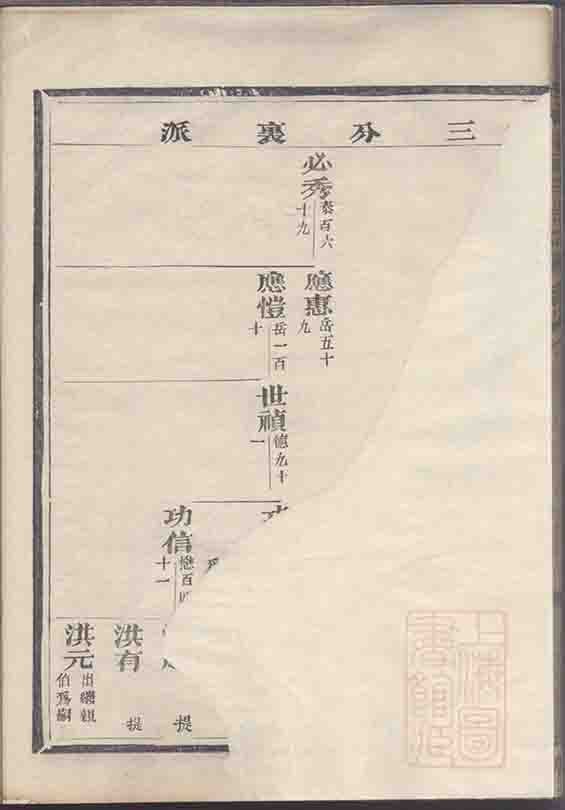 三分裏派
必秀 泰百六十九
應惠 岳五十九
應愷 岳一百十
世禎 德九十一
功信 懋百四十一
洪有 提
提
洪元 出繼親伯為嗣
上海圖書館藏